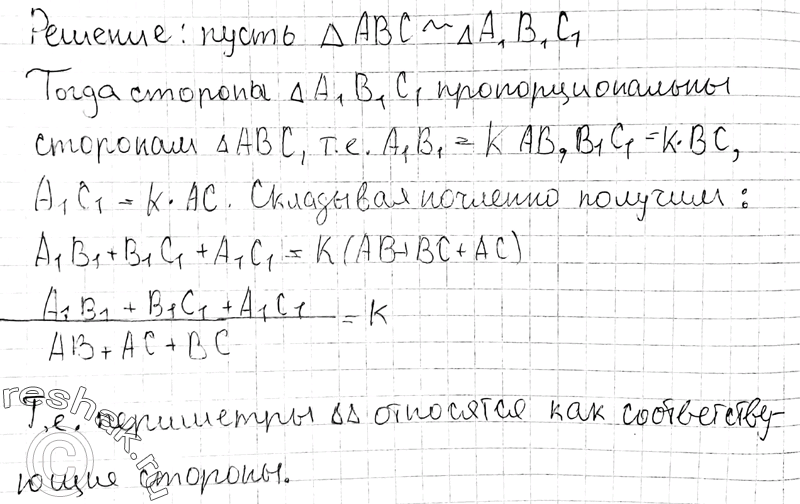 Решение: пусть △ABC ~ △A₁B₁C₁
Тогда стороны △A₁B₁C₁ пропорциональны
сторонам △ABC, т.е. A₁B₁ = K AB, B₁C₁ = K·BC,
A₁C₁ = K·AC. Складывая почленно получим:
A₁B₁ + B₁C₁ + A₁C₁ = K(AB+BC+AC)
A₁B₁ + B₁C₁ + A₁C₁
= K
AB + AC + BC
Т.е. периметры △△ относятся как соответству-
ющие стороны.
reshak.ru
©